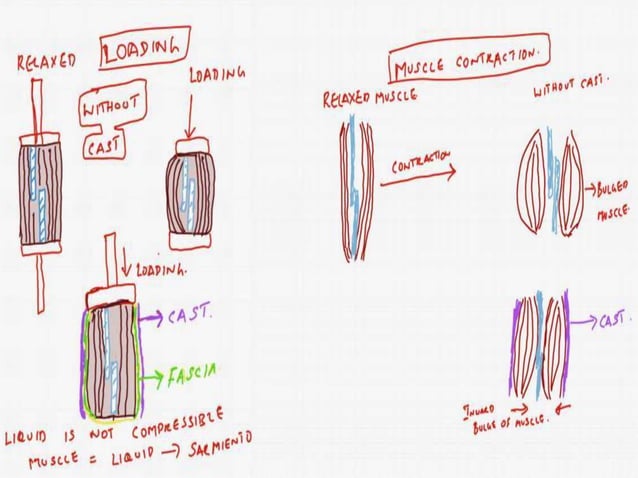 LOADING
RELAXED
LOADING
WITHOUT
CAST
LOADING.
CAST.
FASCIA
LIQUID IS NOT COMPRESSIBLE
MUSCLE = LIQUID → SARMIENTO
MUSCLE CONTRACTION.
RELAXED MUSCLE
WITHOUT CAST.
CONTRACTION
BULGED
MUSCLE.
CAST.
INWARD
BULGE OF MUSCLE.